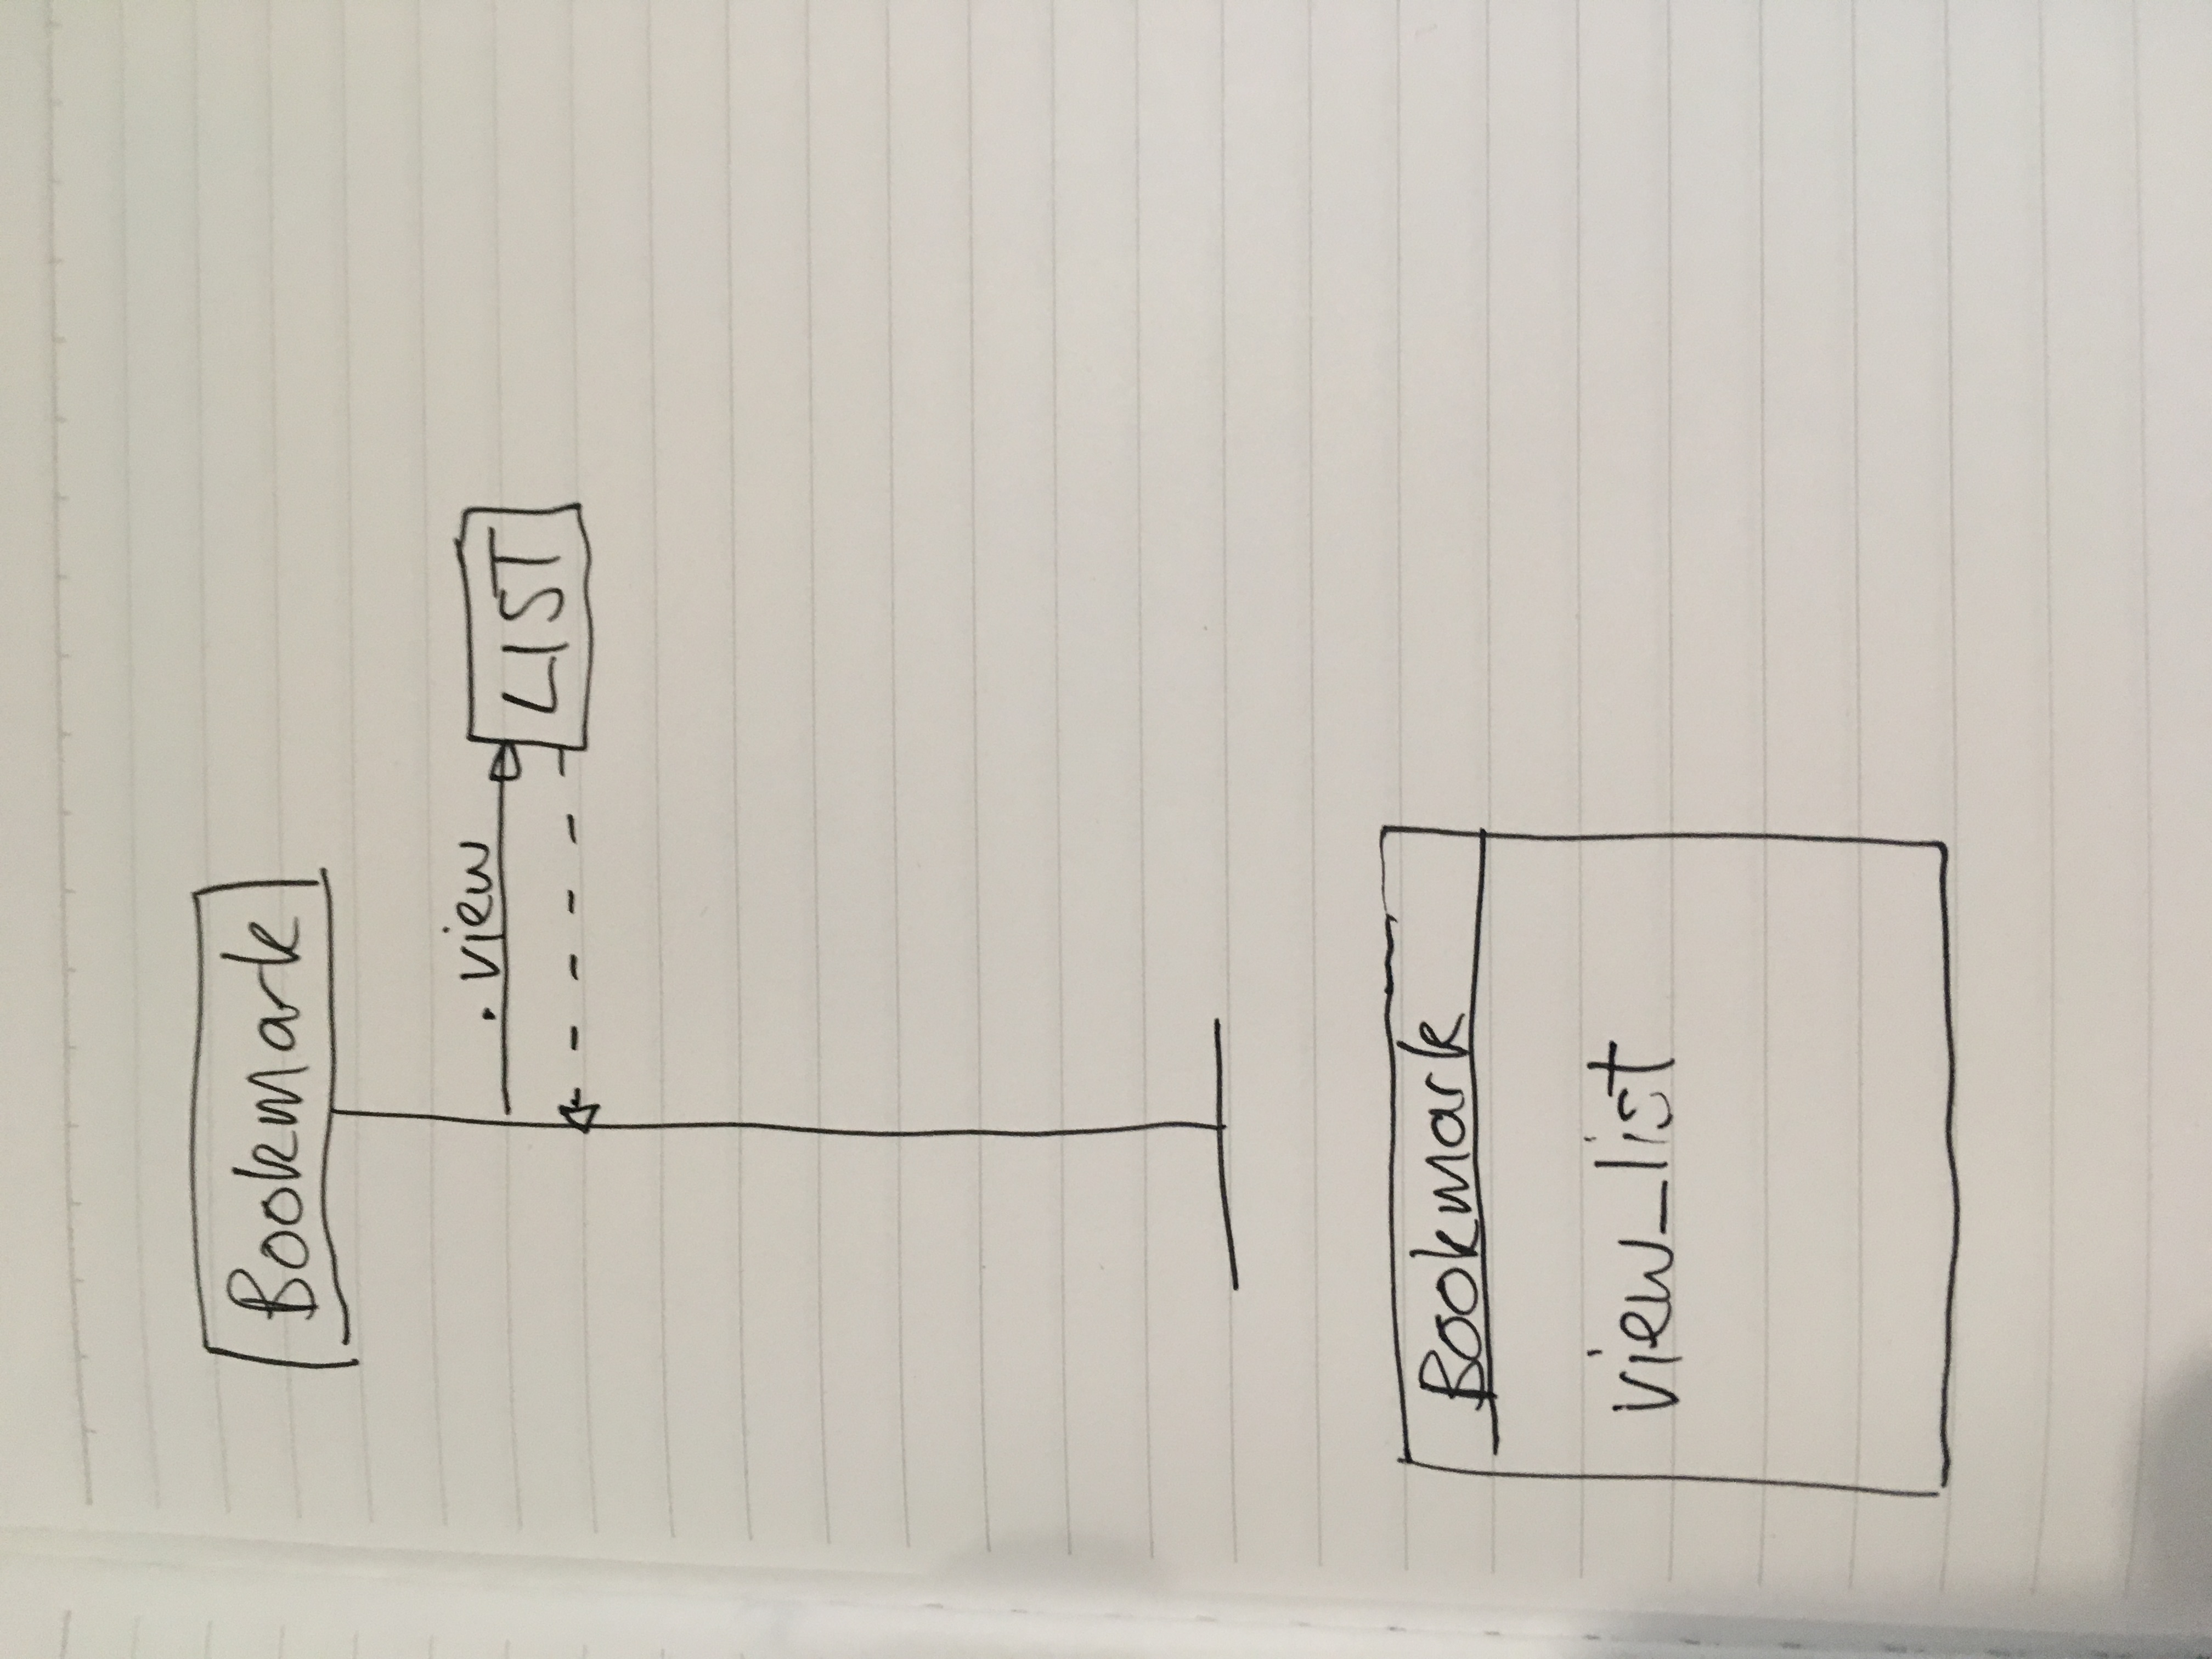 Bookmark
. view
LIST
Bookmark
view_list